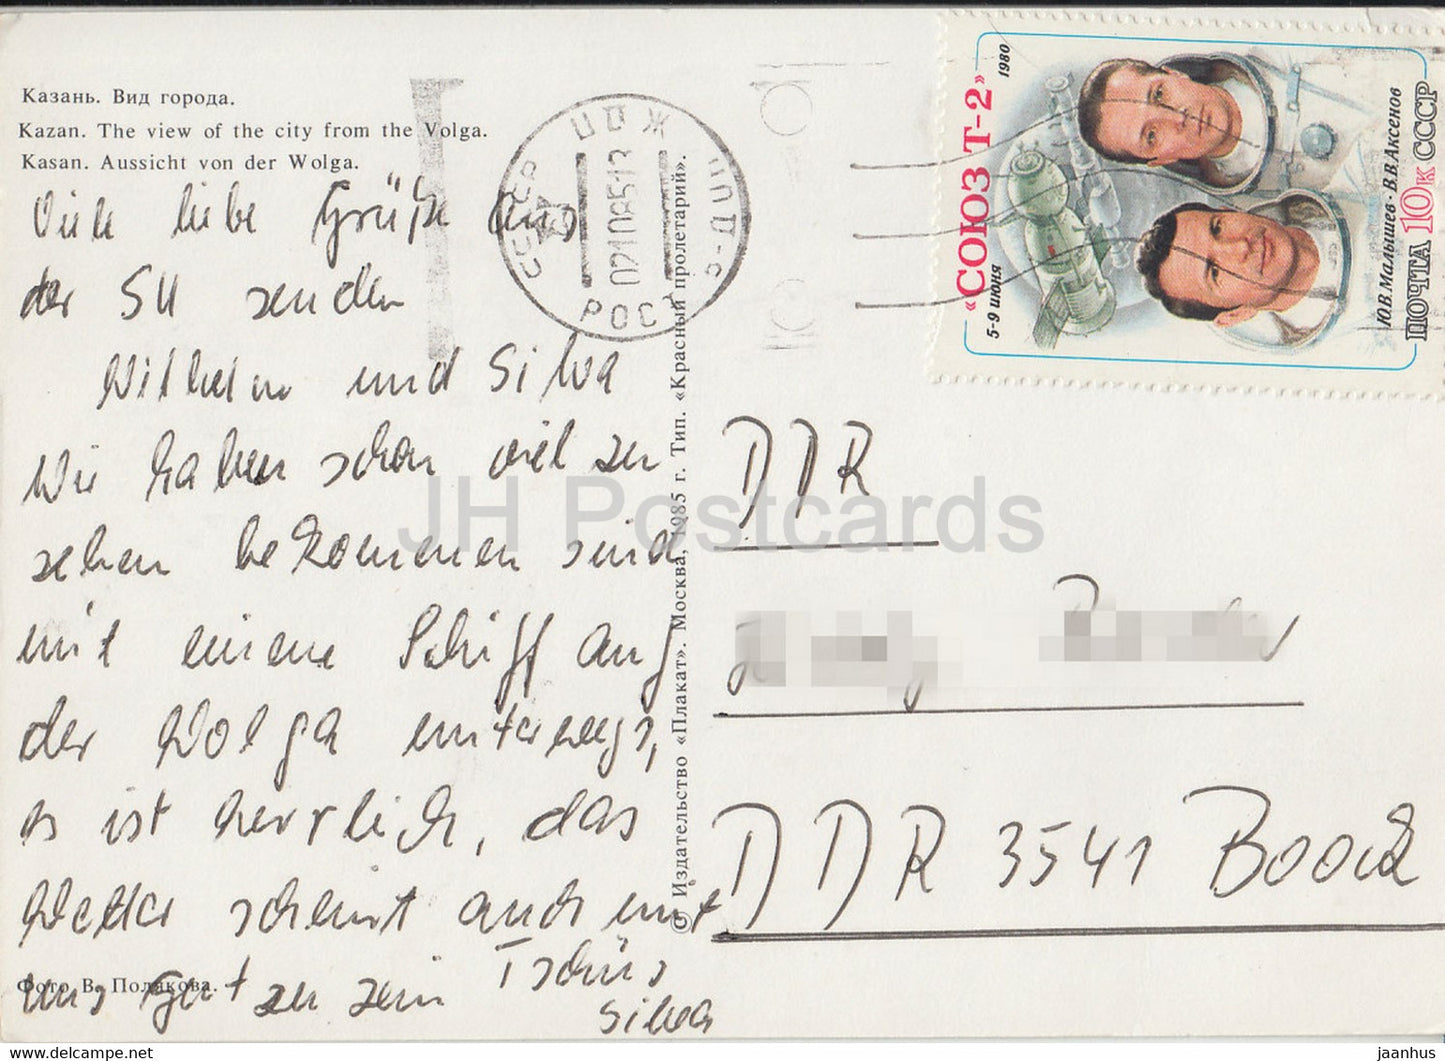 Казань. Вид города.
Kazan. The view of the city from the Volga.
Kasan. Aussicht von der Wolga.
Viele liebe Grüße aus
der SU senden
Wilhelm und Silva
Wir haben schon viel zu
sehen bekommen sind
mit einem Schiff auf
der Wolga unterwegs,
es ist herrlich, das
Wetter scheint auch mit
uns gut zu sein Tschüs
Silva
Фото В. Полякова.
© Издательство «Плакат». Москва, 1985 г. Тип. «Красный пролетарий».
СССР
РОСТ
«СОЮЗ Т-2»
5-9 июня 1980
Ю.В.Малышев · В.В.Аксенов
ПОЧТА 10К СССР
DDR
DDR 3541 Boock
JH Postcards
jaanhus.com - delcampe.net